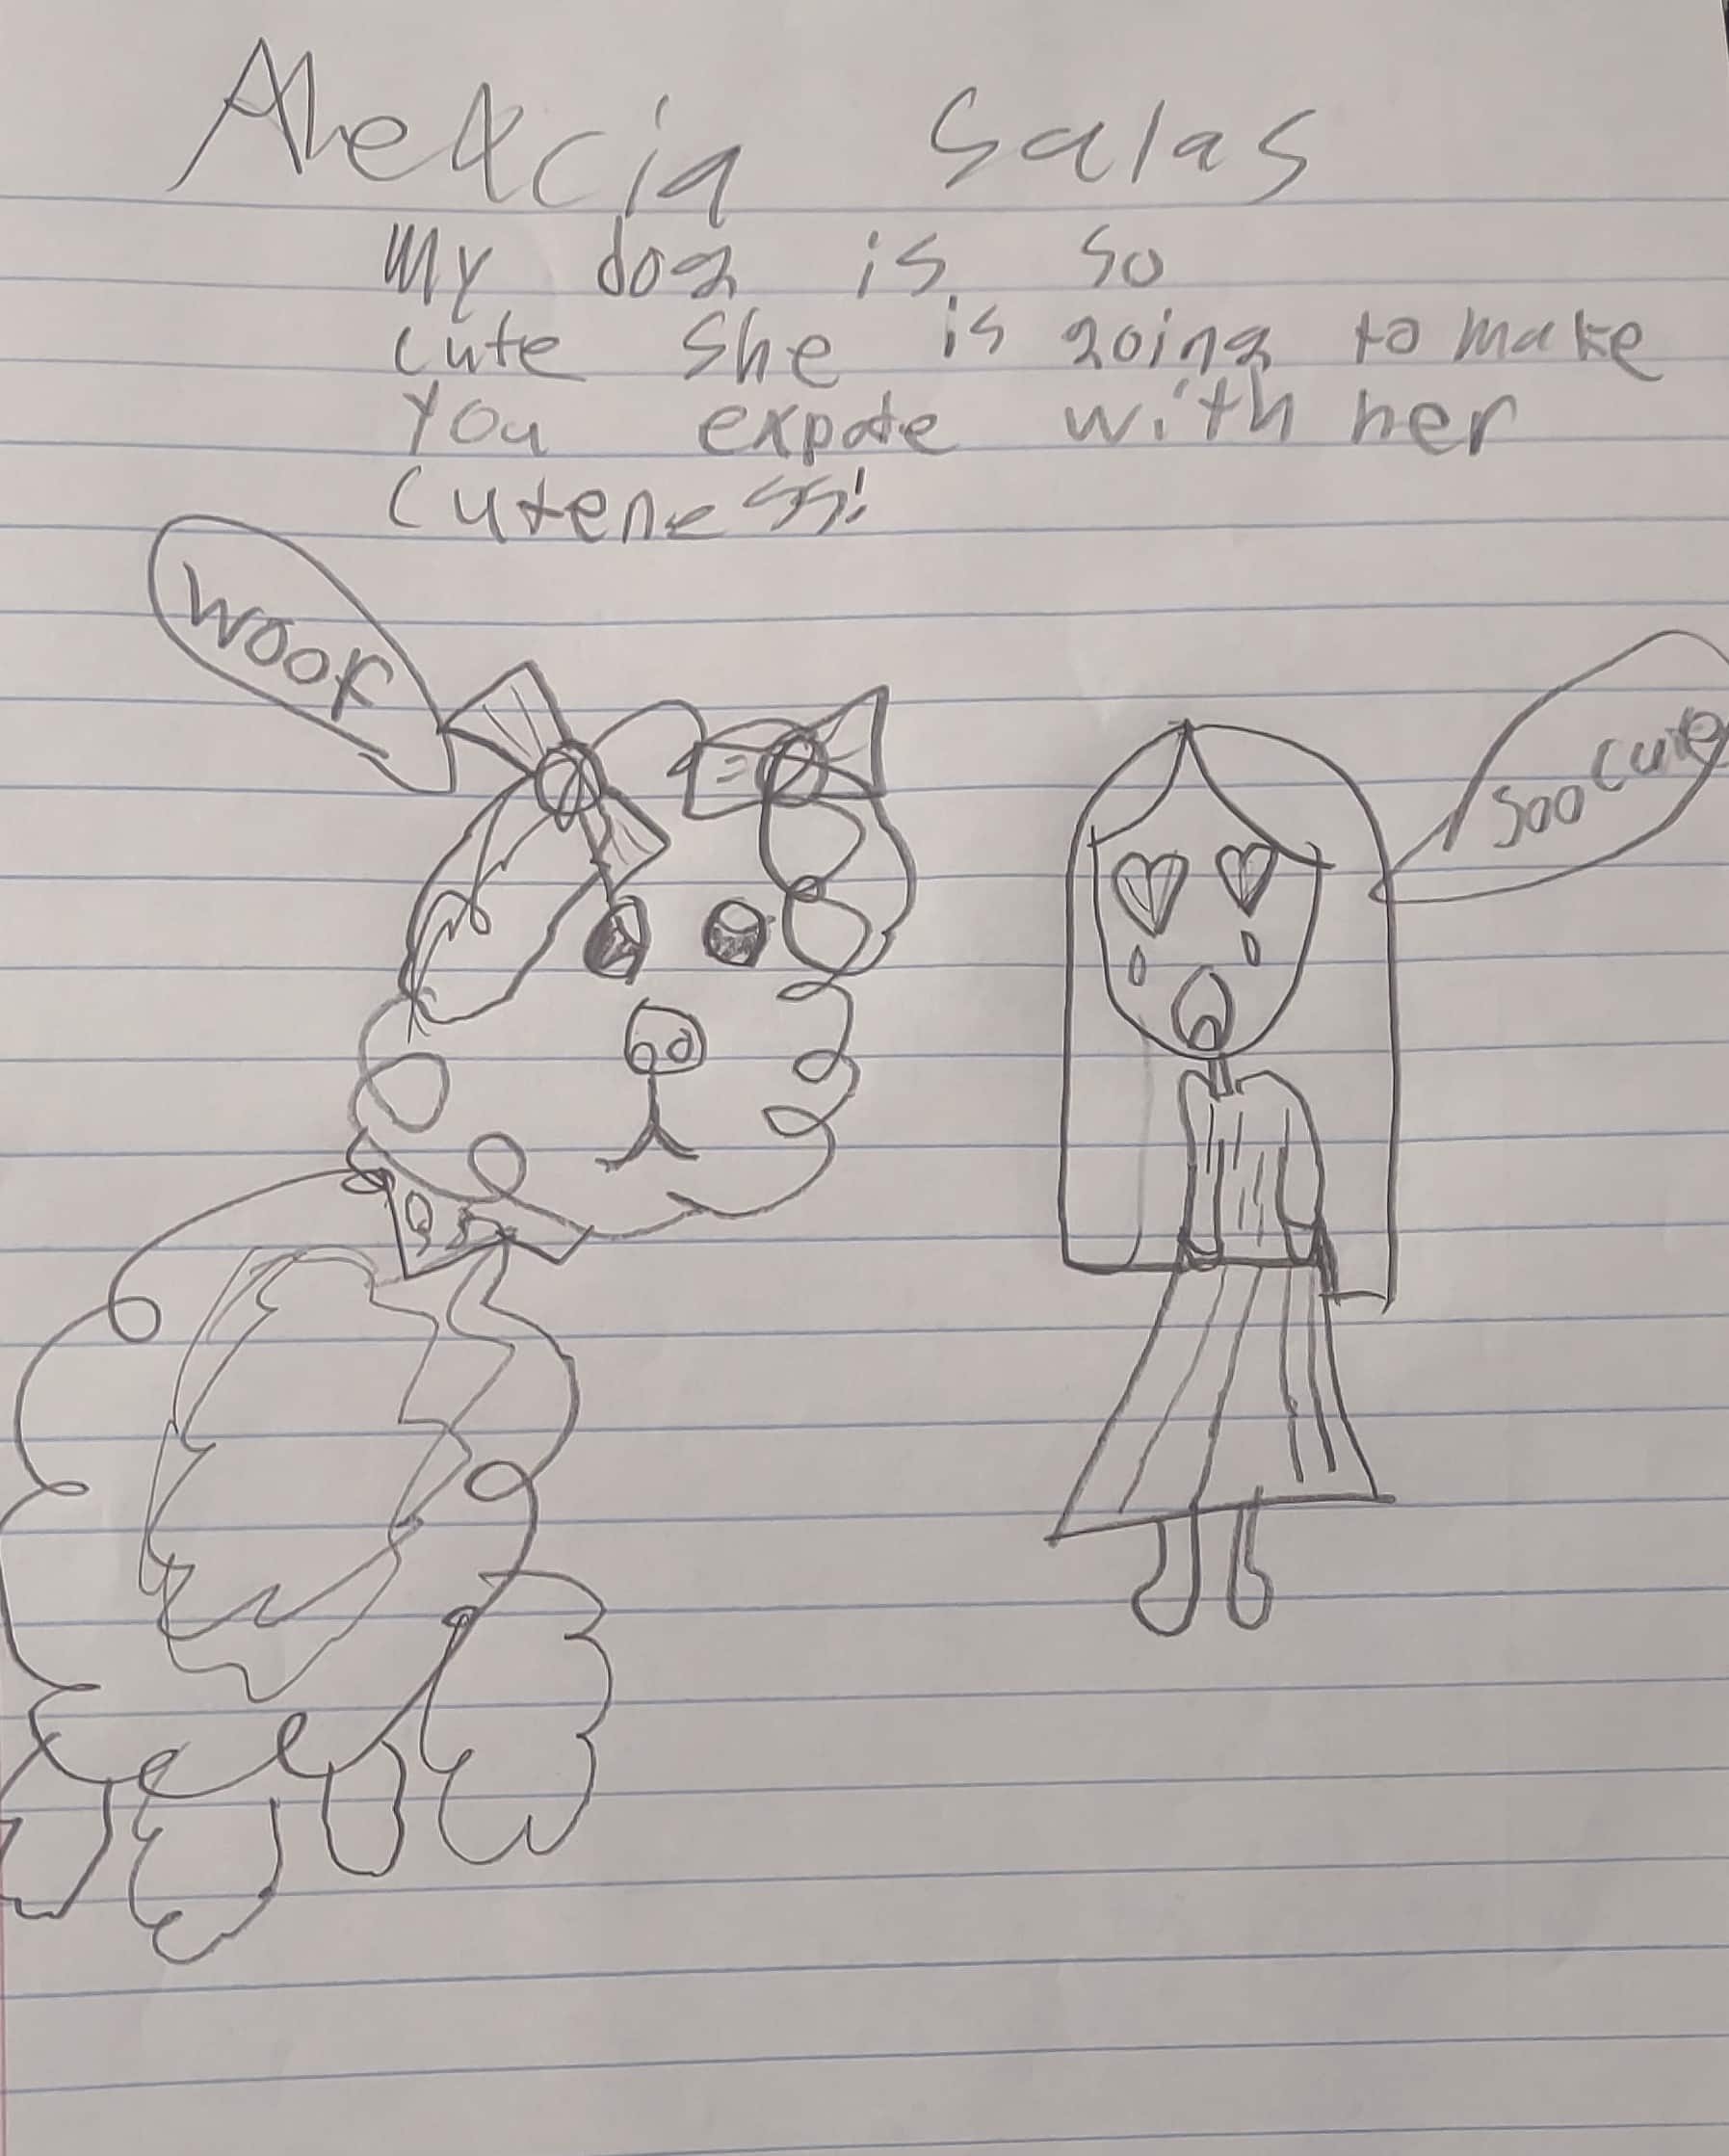 Alexcia Salas
My dog is so
cute she is going to make
you expode with her
cuteness!
woof
soo cute